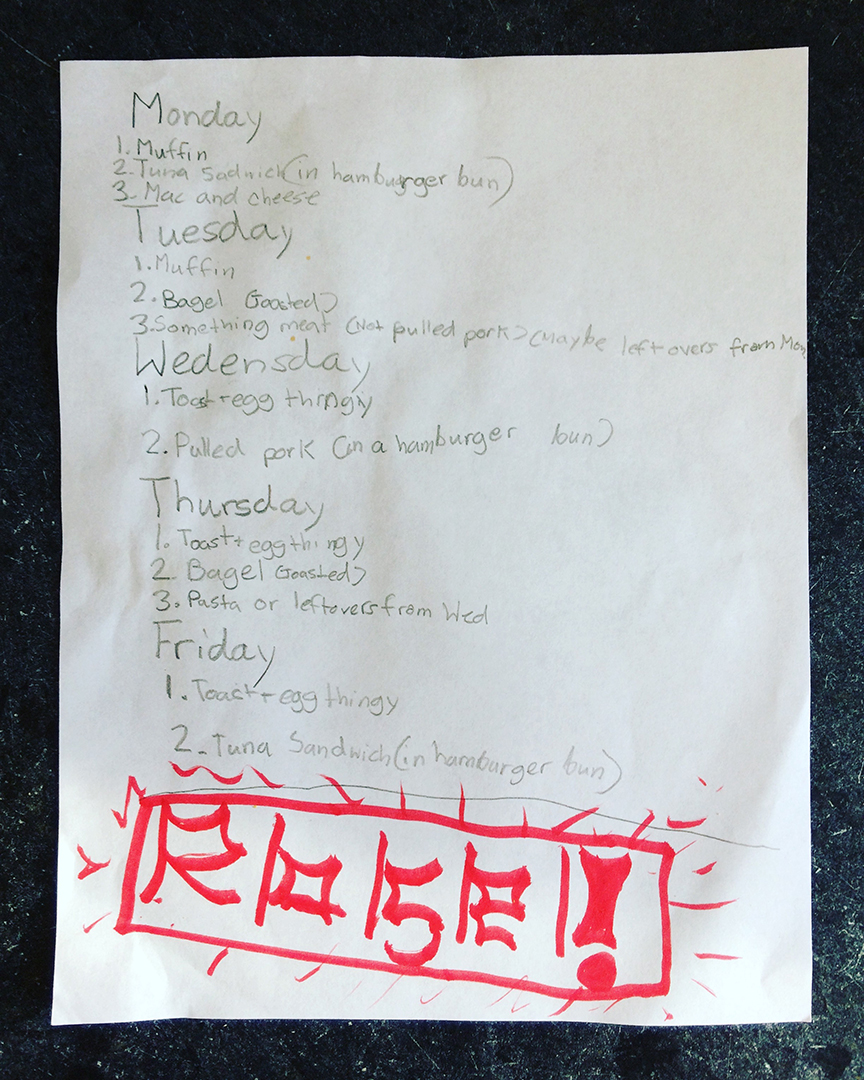 Monday
1. Muffin
2. Tuna Sadwich (in hamburgger bun)
3. Mac and cheese
Tuesday
1. Muffin
2. Bagel (toasted)
3. Something meat (Not pulled pork) (Maybe leftovers from Mon
Wedensday
1. Toast + egg thingiy
2. Pulled pork (in a hamburger bun)
Thursday
1. Toast + egg thingy
2. Bagel (toasted)
3. Pasta or leftovers from Wed
Friday
1. Toast + egg thingy
2. Tuna Sandwich (in hamburger bun)
Rose!